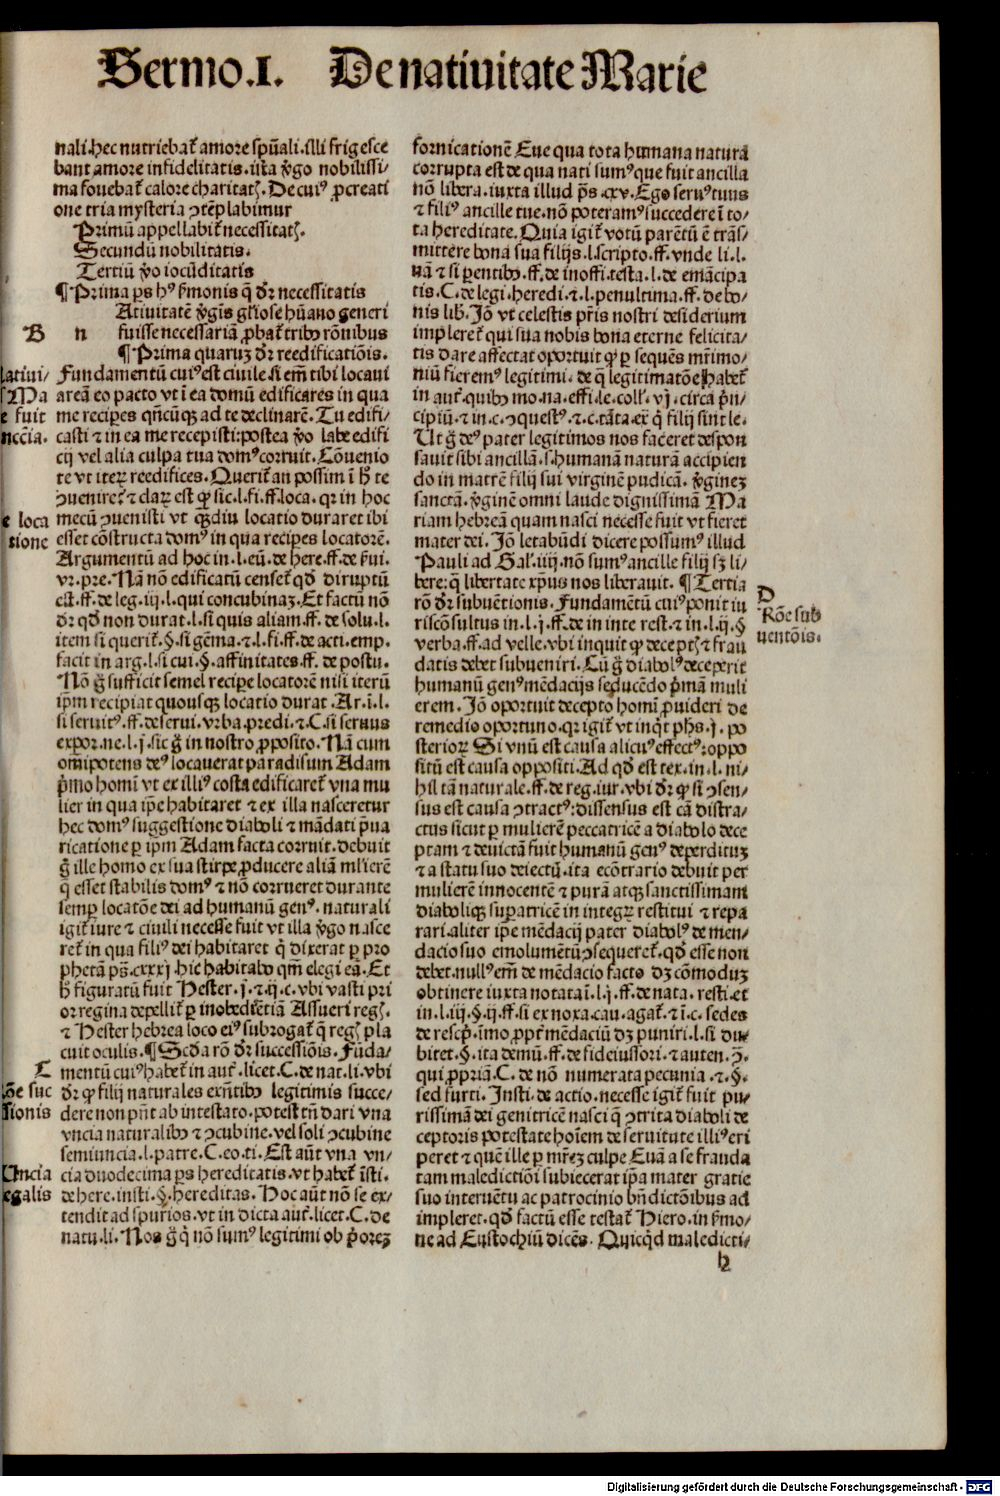 Sermo.I. De natiuitate Marie
nali.hec nutriebat᷑ amore sp̄uali.illi frigesce
bant amore infidelitatis.ista v̄go nobilissi/
ma fouebat᷑ calore charitatꝭ.De cuiꝰ ꝓcreati
one tria mysteria ↄtēplabimur
Primū appellabit᷑ necessitatꝭ.
Secundū nobilitatis.
Tertiū v̄o iocūditatis
¶Prima ꝑs hꝰ ẜmonis q̄ dr̄ necessitatis
Atiuitatē v̄gĩs gl̓iose hūano generi
B n fuisse necessariā ꝓbat᷑ tribꝰ rōnibus
¶Prima quaruꝫ dr̄ reedificatiōis.
Fundamentū cuiꝰ est ciuile.si em̄ tibi locaui
areā eo pacto vt ī ea domū edificares in qua
me recipes qn̄cūqꝫ ad te declinarē.Tu edifi/
casti ⁊ in ea me recepisti:postea v̄o labe edifi
cij vel alia culpa tua domꝰ corruit.Cōuenio
te vt iterꝝ reedifices.Querit᷑ an possim ī hͦ te
ↄuenire:⁊ claꝝ est ꝙ sic.l.fi.ff.loca.qr in hoc
mecū ↄuenisti vt qͣꝫdiu locatio duraret ibi
esset cōstructa domꝰ in qua recipes locatorē.
Argumentū ad hoc in.l.eū.de here.ff.de ẜui.
vr.pre.Nā nō edificatū censet᷑ qd̓ diruptū
est.ff.de leg.iij.l.qui concubinaꝫ.Et factū nō
dr̄ qd̓ non durat.l.si quis aliam.ff.de solu.l.
item si querit᷑.§.si gēma.⁊.l.fi.ff.de acti.emp.
facit in arg.l.si cui.§.affinitates.ff.de postu.
Nō g̊ sufficit semel recipe locatorē nisi iterū
ip̄m recipiat quousqꝫ locatio durat.Ar.i.l.
si seruitꝰ.ff.de serui.vrba.predi.⁊.C.si seruus
expor.ne.l.j.sic g̊ in nostro ꝓposito.Nā cum
om̄ipotens deꝰ locauerat paradisum Adam
p̄mo homini vt ex illiꝰ costa edificaret᷑ vna mu
lier in qua ip̄e habitaret ⁊ ex illa nasceretur
hec domꝰ suggestione diaboli ⁊ mādati p̄ua
ricatione ꝑ ip̄m Adam facta corruit.debuit
g̊ ille homo ex sua stirpe ꝓducere aliā ml̓ierē
q̄ esset stabilis domꝰ ⁊ nō corrueret durante
semꝑ locatōe dei ad humanū genꝰ.naturali
igit᷑ iure ⁊ ciuili necesse fuit vt illa v̄go nasce
ret᷑ in qua filiꝰ dei habitaret q̄ dixerat ꝑ pro
phetā ps̄.cxxxj.hic habitabo qm̄ elegi eā.Et
hͦ figuratū fuit Hester.j.⁊.ij.c.vbi vasti pri
or regina depellit᷑ ꝑ inobediētiā Assueri regꝭ.
⁊ Hester hebrea loco eiꝰ subrogat᷑ q̄ regꝭ pla
cuit oculis.¶Scd̓a rō dr̄ successiōis.Fūda/
mentū cuiꝰ habet᷑ in aut̓.licet.C.de nat.li.vbi
dr̄ ꝙ filij naturales exn̄tibꝰ legitimis succe/
dere non pn̄t ab intestato.potest tn̄ dari vna
vncia naturalibꝰ ⁊ ↄcubine.vel soli ↄcubine
semiuncia.l.patre.C.eo.ti.Est aūt vna vn/
cia duodecima ꝑs hereditatis.vt habet᷑ īsti.
de here.insti.§.hereditas.Hoc aūt nō se ex/
tendit ad spurios.vt in dicta aut̓.licet.C.de
natu.li.Nos g̊ qꝛ nō sumꝰ legitimi ob p̄oreꝫ
latiui/
Ma
e fuit
ncc̄ia.
e loca
tione
C
rōe suc
ssionis
Uncia
egalis
fornicationē Eue qua tota humana naturā
corrupta est de qua nati sumꝰ que fuit ancilla
nō libera.iuxta illud ps̄.cxv.Ego seruꝰ tuus
⁊ filiꝰ ancille tue.nō poteramꝰ succedere ī to/
ta hereditate.Quia igit᷑ votū parētū ē trās/
mittere bona sua filijs.l.scripto.ff.vnde li.l.
nā ⁊ si ꝑentibꝰ.ff.de inoffi.testa.l.de emācipa
tis.C.de legi.heredi.⁊.l.penultima.ff.de bo/
nis lib.Jō vt celestis pr̄is nostri desiderium
impleret᷑ qui sua nobis bona eterne felicita/
tis dare affectat oportuit ꝙ ꝑ sequēs mr̄imo/
niū fieremꝰ legitimi.de q̄ legitimatōe habet᷑
in aut̓.quibꝰ mo.na.effi.le.coll̓.vj.circa p̄n/
cipiū.⁊ in.c.ↄquestꝰ.⁊.c.tāta.ex̄ q̄ filij sint le.
Ut g̊ deꝰ pater legitimos nos faceret despon
sauit sibi ancillā.s.humanā naturā accipien
do in matrē filij sui virginē pudicā.v̄gineꝫ
sanctā.v̄ginē omni laude dignissimā Ma
riam hebreā quam nasci necesse fuit vt fieret
mater dei.Jō letabūdi dicere possumꝰ illud
Pauli ad Gal̓.iiij.nō sumꝰ ancille filij sꝫ li/
bere:q̄ libertate xp̄us nos liberauit.¶Tertia
rō dr̄ subuētionis.Fundamētū cuiꝰ ponit iu
riscōsultus in.l.j.ff.de in inte rest.⁊ in.l.ij.§
verba.ff.ad velle.vbi inquit ꝙ deceptꝭ ⁊ frau
datis debet subueniri.Cū g̊ diabolꝰ deceperit
humanū genꝰ mēdacijs seducēdo p̄mam muli
erem.Jō oportuit decepto homi ꝓuideri de
remedio oportuno.qr igit᷑ vt inqͥt ph̄s.j.po
sterioꝝ Si vnū est causa alicuiꝰ effectꝰ:oppo
sitū est causa oppositi.Ad qd̓ est tex.in.l.ni/
hil tā naturale.ff.de reg.iur.vbi dr̄ ꝙ si ↄsen/
sus est causa ↄtractꝰ:dissensus est cā distra/
ctus sicut ꝑ mulierē peccatricē a diabolo dece
ptam ⁊ deuictā fuit humanū genꝰ deperdituꝫ
⁊ a statu suo deiectū.ita ecōtrario debuit per
mulierē innocentē ⁊ purā atqꝫ sanctissimam
diaboliqꝫ suꝑatricē in integꝝ restitui ⁊ repa
rari.aliter ip̄e mēdacij pater diabolꝰ de men/
dacio suo emolumētū ↄsequeret᷑.qd̓ esse non
debet.nullꝰ em̄ de mēdacio facto dꝫ cōmoduꝫ
obtinere iuxta notata ī.l.j.ff.de nata.resti.et
in.l.iij.§.ij.ff.si ex noxa.cau.agat᷑.⁊ ī.c.sedes
de resc̄p.īmo ꝓpt̓ mēdaciū dꝫ puniri.l.si du/
bitet.§.ita demū.ff.de fideiussori.⁊ auten.ↄ̄.
qui ꝓpriā.C.de nō numerata pecunia.⁊.§.
sed furti.Insti.de actio.necesse igit᷑ fuit pu/
rissimā dei genitricē nasci q̄ ↄtrita diaboli de
ceptoris potestate hoīem de seruitute illiꝰ eri
peret ⁊ quē ille ꝑ mr̄eꝫ culpe Euā a se frauda
tam maledictiōi subiecerat ip̄a mater gratie
suo interuētu ac patrocinio bn̄dictōibus ad
impleret.qd̓ factū esse testat᷑ Hiero.in ẜmo/
ne ad Eustochiū dicēs.Quicqͥd maledicti/
D
Rōe sub
uentōis.
h
Digitalisierung gefördert durch die Deutsche Forschungsgemeinschaft - DFG